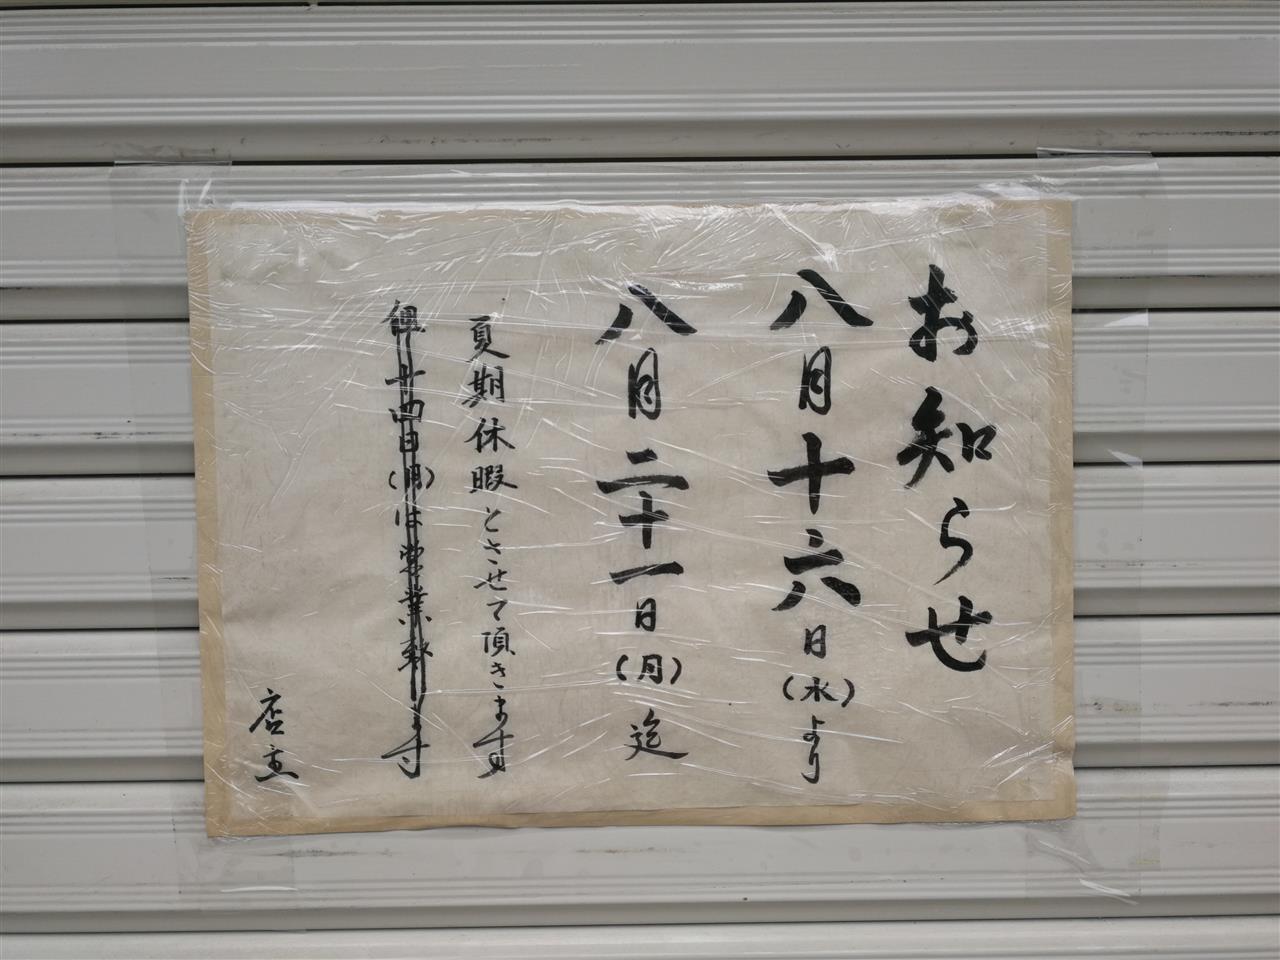 お知らせ
八月十六日(水)より
八月二十一日(月)迄
夏期休暇とさせて頂きます
但廿四日(月)は営業致します
店主